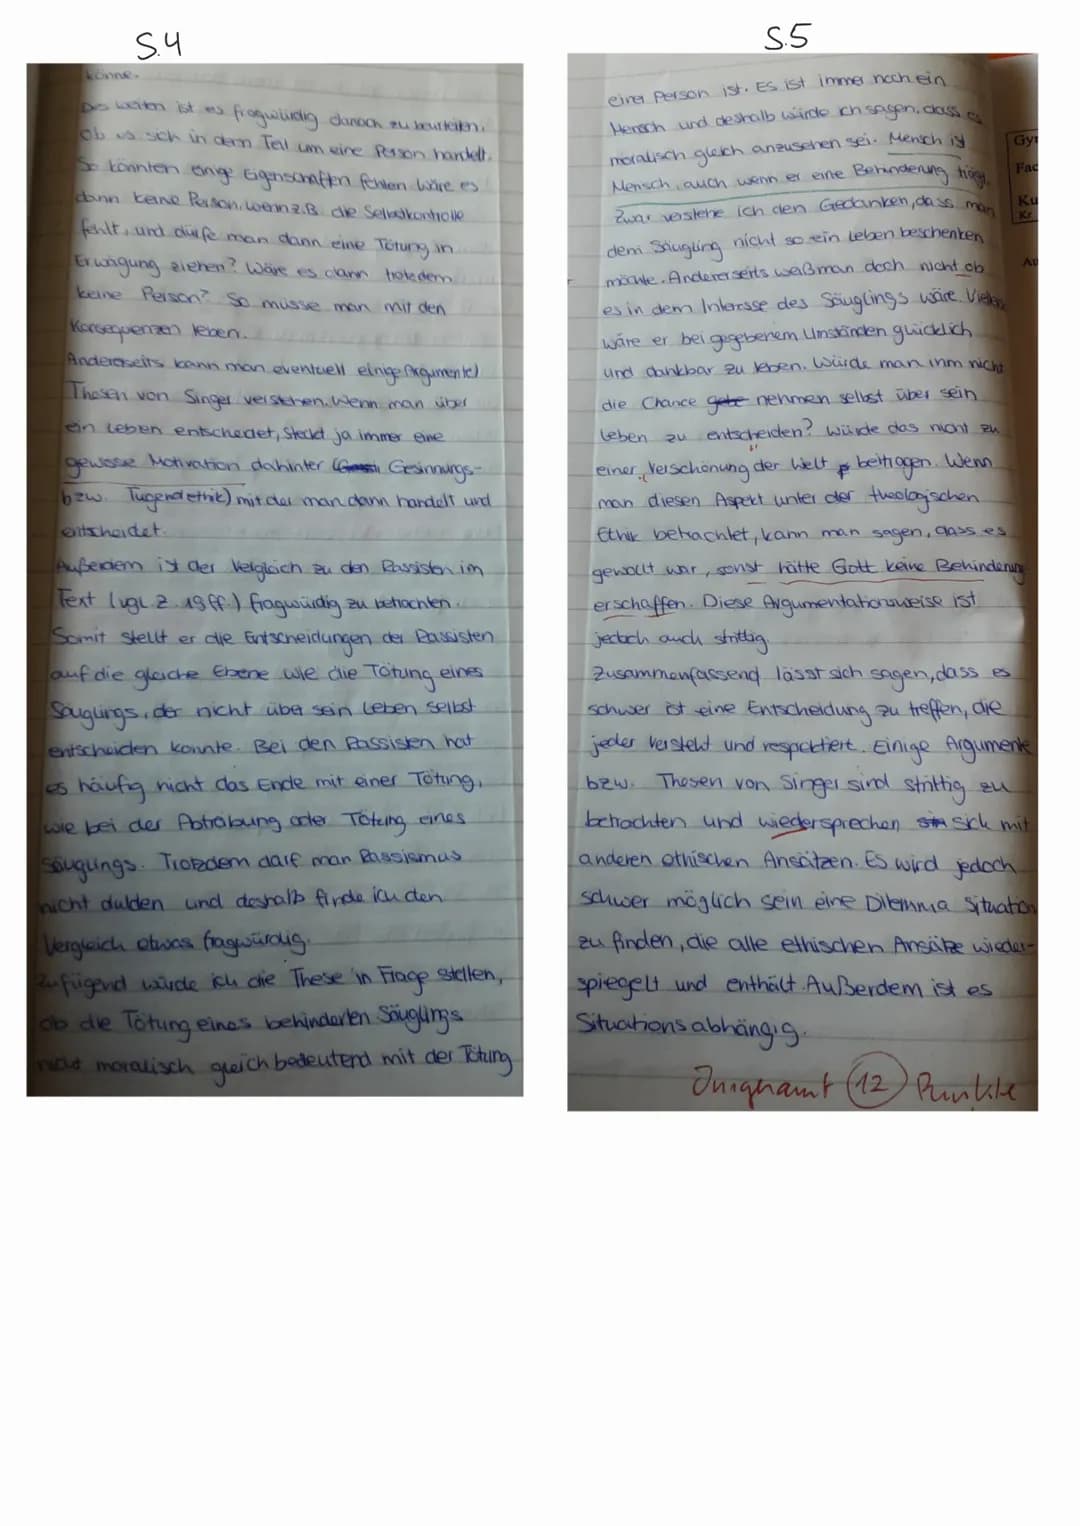 S.4
könne.
Des weiten ist es fragwürdig danach zu beurteilen,
ob es sich in dem Teil um eine Person handelt.
So könnten einige Eigenschaften fehlen. Wäre es
dann keine Person, wenn z.B. die Selbstkontrolle
fehlt, und dürfe man dann eine Tötung in
Erwägung ziehen? Wäre es dann trotzdem
keine Person? So müsse man mit den
Konsequenzen leben.
Andererseits kann man eventuell einige Argumente/
Thesen von Singer verstehen. Wenn man über
ein Leben entscheidet, steckt ja immer eine
gewisse Motivation dahinter (Gesinnungs-
bzw. Tugendethik) mit der man dann handelt und
entscheidet.
Außerdem ist der Vergleich zu den Rassisten im
Text (vgl. Z. 19 ff.) fragwürdig zu betrachten.
Somit stellt er die Entscheidungen der Rassisten
auf die gleiche Ebene wie die Tötung eines
Säuglings, der nicht über sein Leben selbst
entscheiden konnte. Bei den Rassisten hat
es häufig nicht das Ende mit einer Tötung,
wie bei der Abtreibung oder Tötung eines
Säuglings. Trotzdem darf man Rassismus
nicht dulden und deshalb finde ich den
Vergleich etwas fragwürdig.
Zufügend würde ich die These in Frage stellen,
ob die Tötung eines behinderten Säuglings
nicht moralisch gleichbedeutend mit der Tötung
S.5
einer Person ist. Es ist immer noch ein
Mensch und deshalb würde ich sagen, dass es
moralisch gleich anzusehen sei. Mensch ist
Mensch, auch wenn er eine Behinderung trägt.
Zwar verstehe ich den Gedanken, dass man
dem Säugling nicht so ein Leben beschenken
möchte. Andererseits weiß man doch nicht ob
es in dem Interesse des Säuglings wäre. Vielleicht
wäre er bei gegebenem Umständen glücklich
und dankbar zu leben. Würde man ihm nicht
die Chance nehmen selbst über sein
Leben zu entscheiden? Würde das nicht zu
einer "Verschönung der Welt" beitragen. Wenn
man diesen Aspekt unter der theologischen
Ethik betrachtet, kann man sagen, dass es
gewollt war, sonst hätte Gott keine Behinderung
erschaffen. Diese Argumentationsweise ist
jedoch auch strittig.
Zusammenfassend lässt sich sagen, dass es
schwer ist eine Entscheidung zu treffen, die
jeder versteht und respektiert. Einige Argumente
bzw. Thesen von Singer sind strittig zu
betrachten und wiedersprechen sich mit
anderen ethischen Ansätzen. Es wird jedoch
schwer möglich sein eine Dilemma Situation
zu finden, die alle ethischen Ansätze wieder-
spiegelt und enthält. Außerdem ist es
Situationsabhängig.
Insgesamt 12 Punkte
Gy
Fac
Ku
Kr